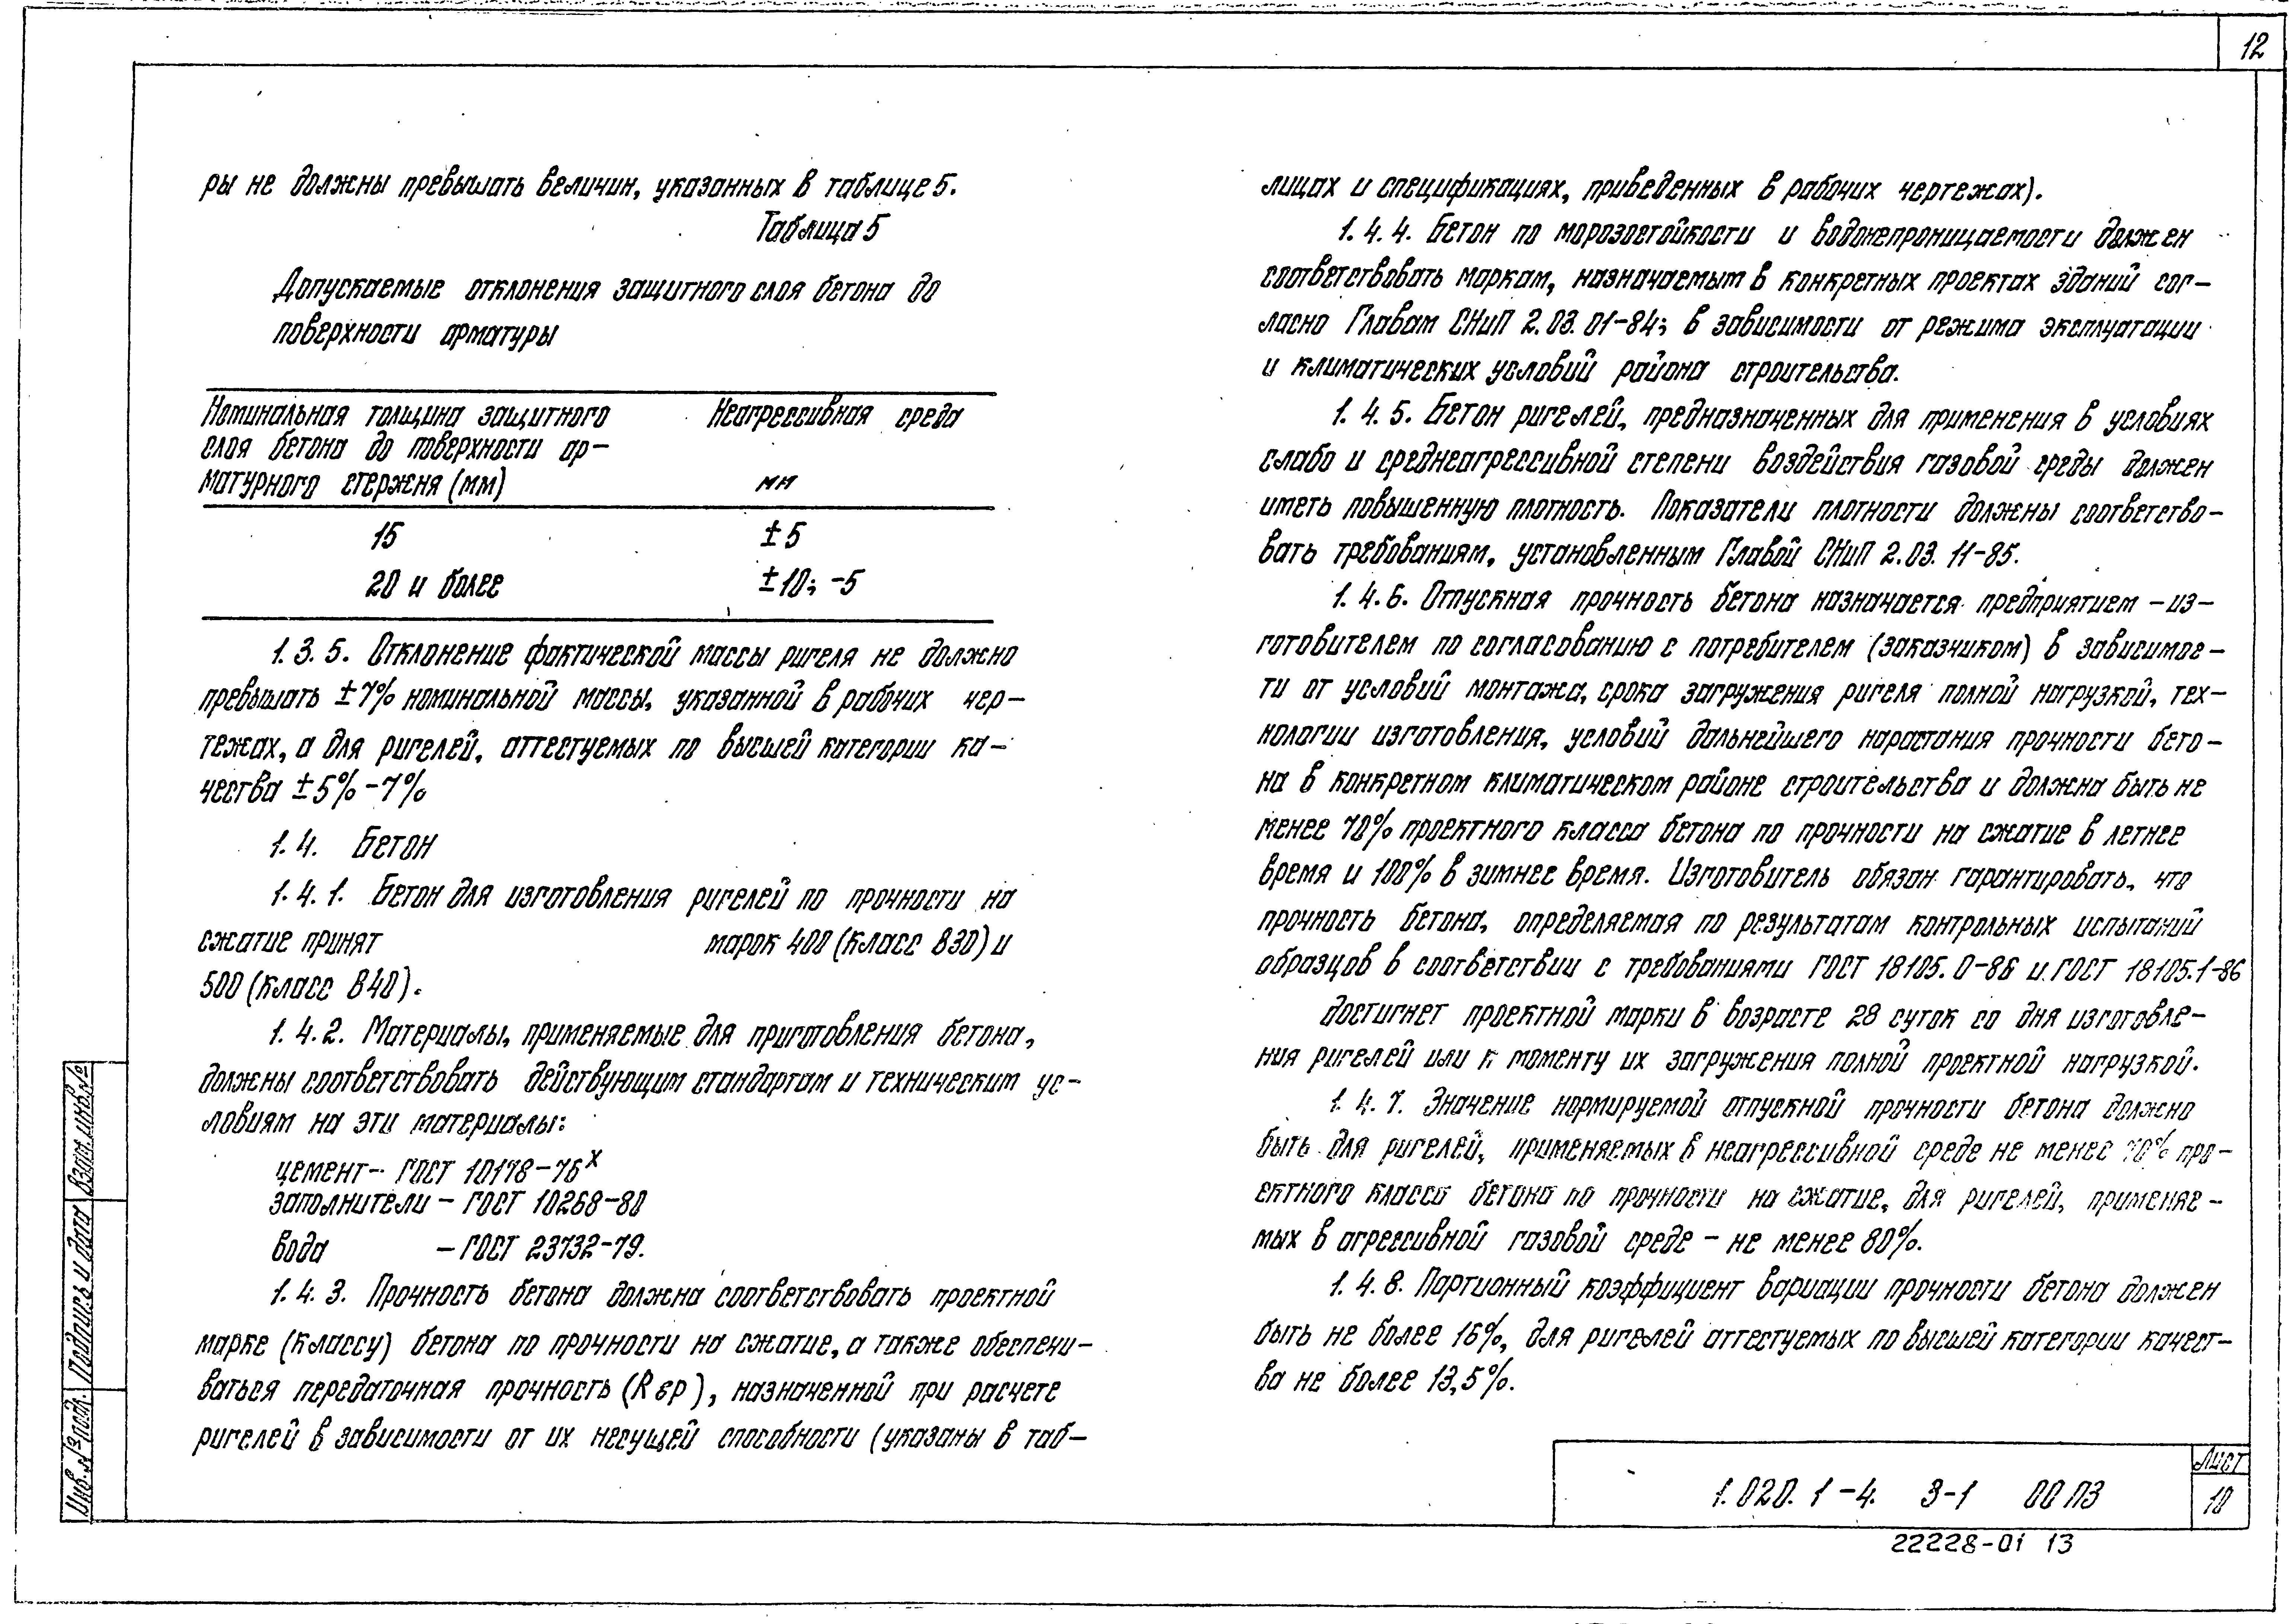 12
ры не должны превышать величин, указанных в таблице 5.
Таблица 5
Допускаемые отклонения защитного слоя бетона до
поверхности арматуры
Номинальная толщина защитного
слоя бетона до поверхности ар-
матурного стержня (мм)
Неагрессивная среда
мм
15 ±5
20 и более ±10; -5
1.3.5. Отклонение фактической массы ригеля не должно
превышать ±7% номинальной массы, указанной в рабочих чер-
тежах, а для ригелей, аттестуемых по высшей категории ка-
чества ±5% -7%
1.4. Бетон
1.4.1. Бетон для изготовления ригелей по прочности на
сжатие принят марок 400 (класс В30) и
500 (класс В40).
1.4.2. Материалы, применяемые для приготовления бетона,
должны соответствовать действующим стандартам и техническим ус-
ловиям на эти материалы:
цемент - ГОСТ 10178-76х
заполнители - ГОСТ 10268-80
вода - ГОСТ 23732-79.
1.4.3. Прочность бетона должна соответствовать проектной
марке (классу) бетона по прочности на сжатие, а также обеспечи-
ваться передаточная прочность (Rвр), назначенной при расчете
ригелей в зависимости от их несущей способности (указаны в таб-
лицах и спецификациях, приведенных в рабочих чертежах).
1.4.4. Бетон по морозостойкости и водонепроницаемости должен
соответствовать маркам, назначаемым в конкретных проектах зданий сог-
ласно Главам СНиП 2.03.01-84; в зависимости от режима эксплуатации
и климатических условий района строительства.
1.4.5. Бетон ригелей, предназначенных для применения в условиях
слабо и среднеагрессивной степени воздействия газовой среды должен
иметь повышенную плотность. Показатели плотности должны соответство-
вать требованиям, установленным Главой СНиП 2.03.11-85.
1.4.6. Отпускная прочность бетона назначается предприятием -из-
готовителем по согласованию с потребителем (заказчиком) в зависимос-
ти от условий монтажа, срока загружения ригеля полной нагрузкой, тех-
нологии изготовления, условий дальнейшего нарастания прочности бето-
на в конкретном климатическом районе строительства и должна быть не
менее 70% проектного класса бетона по прочности на сжатие в летнее
время и 100% в зимнее время. Изготовитель обязан гарантировать, что
прочность бетона, определяемая по результатам контрольных испытаний
образцов в соответствии с требованиями ГОСТ 18105.0-86 и ГОСТ 18105.1-86
достигнет проектной марки в возрасте 28 суток со дня изготовле-
ния ригелей или к моменту их загружения полной проектной нагрузкой.
1.4.7. Значение нормируемой отпускной прочности бетона должно
быть для ригелей, применяемых в неагрессивной среде не менее 70% про-
ектного класса бетона по прочности на сжатие, для ригелей, применяе-
мых в агрессивной газовой среде - не менее 80%.
1.4.8. Партионный коэффициент вариации прочности бетона должен
быть не более 16%, для ригелей аттестуемых по высшей категории качест-
ва не более 13,5%.
Инв. № подл. Подпись и дата Взам. инв. №
1.020.1-4. 3-1 00 ПЗ
Лист
10
22228-01 13